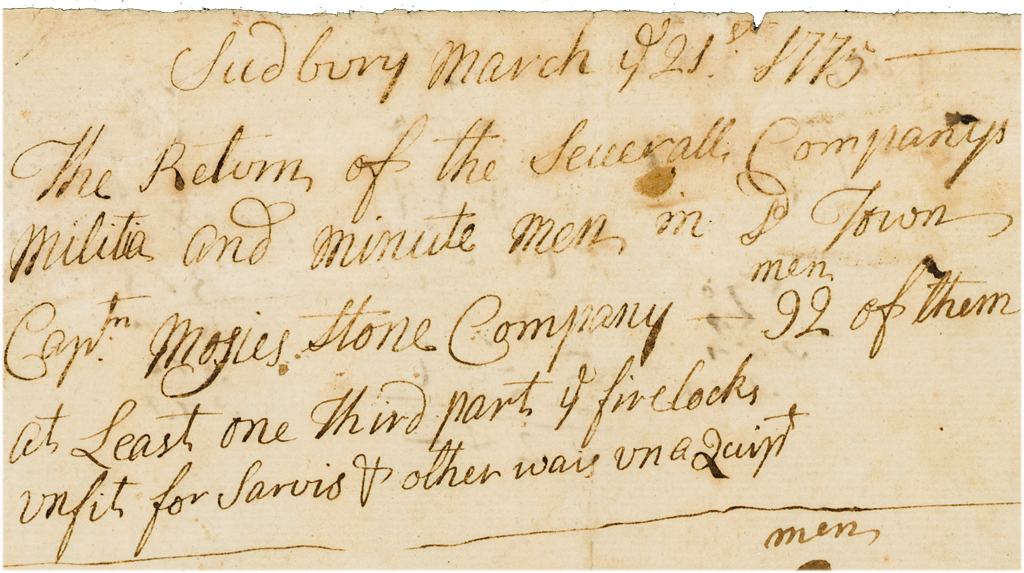 Sudbury March ye 21st. 1775
The Return of the Severall Companys
Milita and minute men in sd Town
men
Capt.n Mosies Stone Company — 92 of them
at Least one Third part ye firelocks
vnfit for Sarvis & other wais vnaQuipt
men